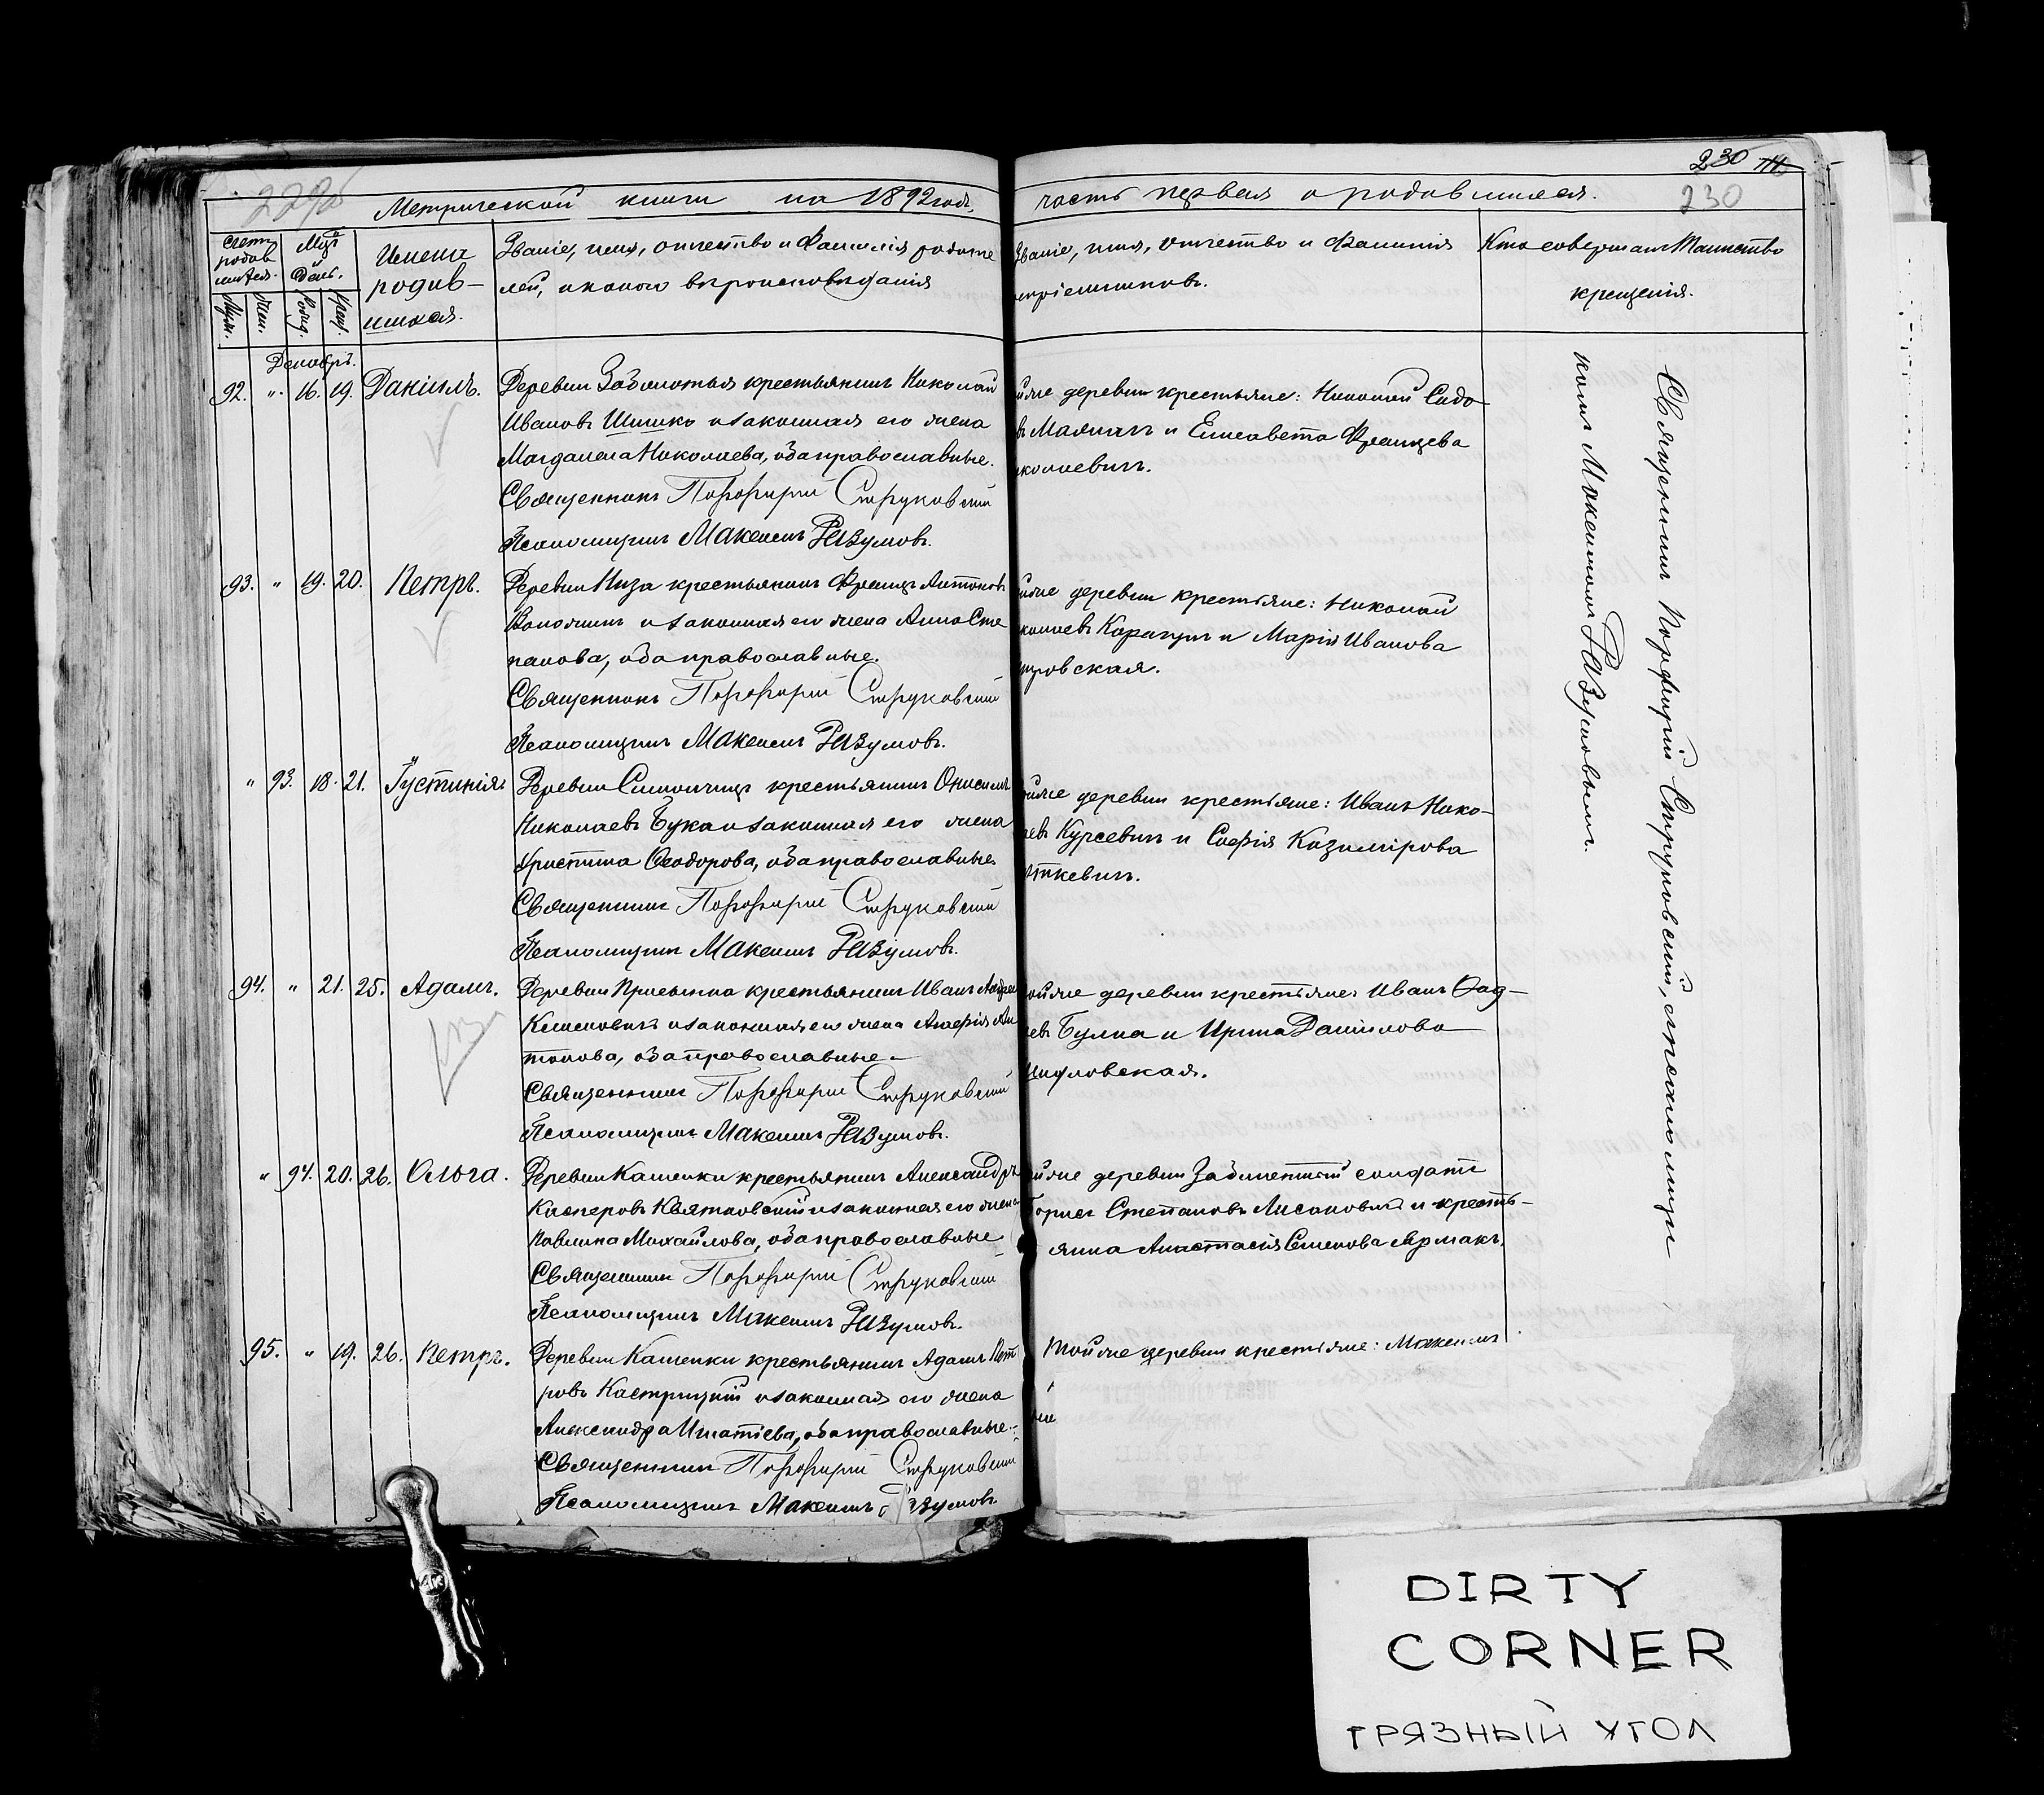 230
229
230
Метрической книги на 1892 годъ,
часть первая о родившихся.
Счетъ родив шихся.
Мѣс. День.
Муж. Жен. Рожд. Крещ.
Имена
родив-
шихся.
Званіе, имя, отчество и фамилія родите
лей, и какого вѣроисповѣданія
Званіе, имя, отчество и фамилія
воспріемниковъ.
Кто совершалъ Таинство
крещенія.
Декабрь.
92. " 16. 19. Даніилъ.
Деревни Заболотья крестьянинъ Николай
Ивановъ Шишко и законная его жена
Магдалена Николаева, оба православные.
Священникъ Порфирій Струковскій
Псаломщикъ Максимъ Разумовъ.
деревни крестьяне: Николай Сидо
въ и Елисавета Францева
93. " 19. 20. Петръ.
Деревни Низа крестьянинъ Францъ Антоновъ
и законная его жена Анна Сте
панова, оба православные.
Священникъ Порфирій Струковскій
Псаломщикъ Максимъ Разумовъ.
деревни крестьяне: Николай
и Марія Иванова
" 93. 18. 21. Іустинія.
Деревни крестьянинъ Онисимъ
Николаевъ Бука и законная его жена
Христина Ѳеодорова, оба православные
Священникъ Порфирій Струковскій
Псаломщикъ Максимъ Разумовъ.
деревни крестьяне: Иванъ Нико-
Курсевичъ и Софія Казимірова
94. " 21. 25. Адамъ.
Деревни крестьянинъ Иванъ Андреевъ
Климовичъ и законная его жена Ан
тонова, оба православные -
Священникъ Порфирій Струковскій
Псаломщикъ Максимъ Разумовъ.
деревни крестьяне: Иванъ Ѳад-
и Ирина Даніилова
" 94. 20. 26. Ольга.
Деревни Каменки крестьянинъ Александръ
Касперовъ Квятковскій и законная его жена
Павлина Михайлова, оба православные
Священникъ Порфирій Струковскій
Псаломщикъ Максимъ Разумовъ.
деревни солдатъ
Борисъ Степановъ Лисаковичъ и кресть-
янка Анастасія Семенова Ярмакъ.
95. " 19. 26. Петръ.
Деревни Каменки крестьянинъ Адамъ Пет
ровъ Кастрицкій и законная его жена
Александра Игнатіева, оба православные -
Священникъ Порфирій Струковскій
Псаломщикъ Максимъ Разумовъ
Той же деревни крестьяне: Максимъ
Священникъ Порфирій Струковскій, съ псаломщи
комъ Максимомъ Разумовымъ.
4K
DIRTY
CORNER
ГРЯЗНЫЙ УГОЛ